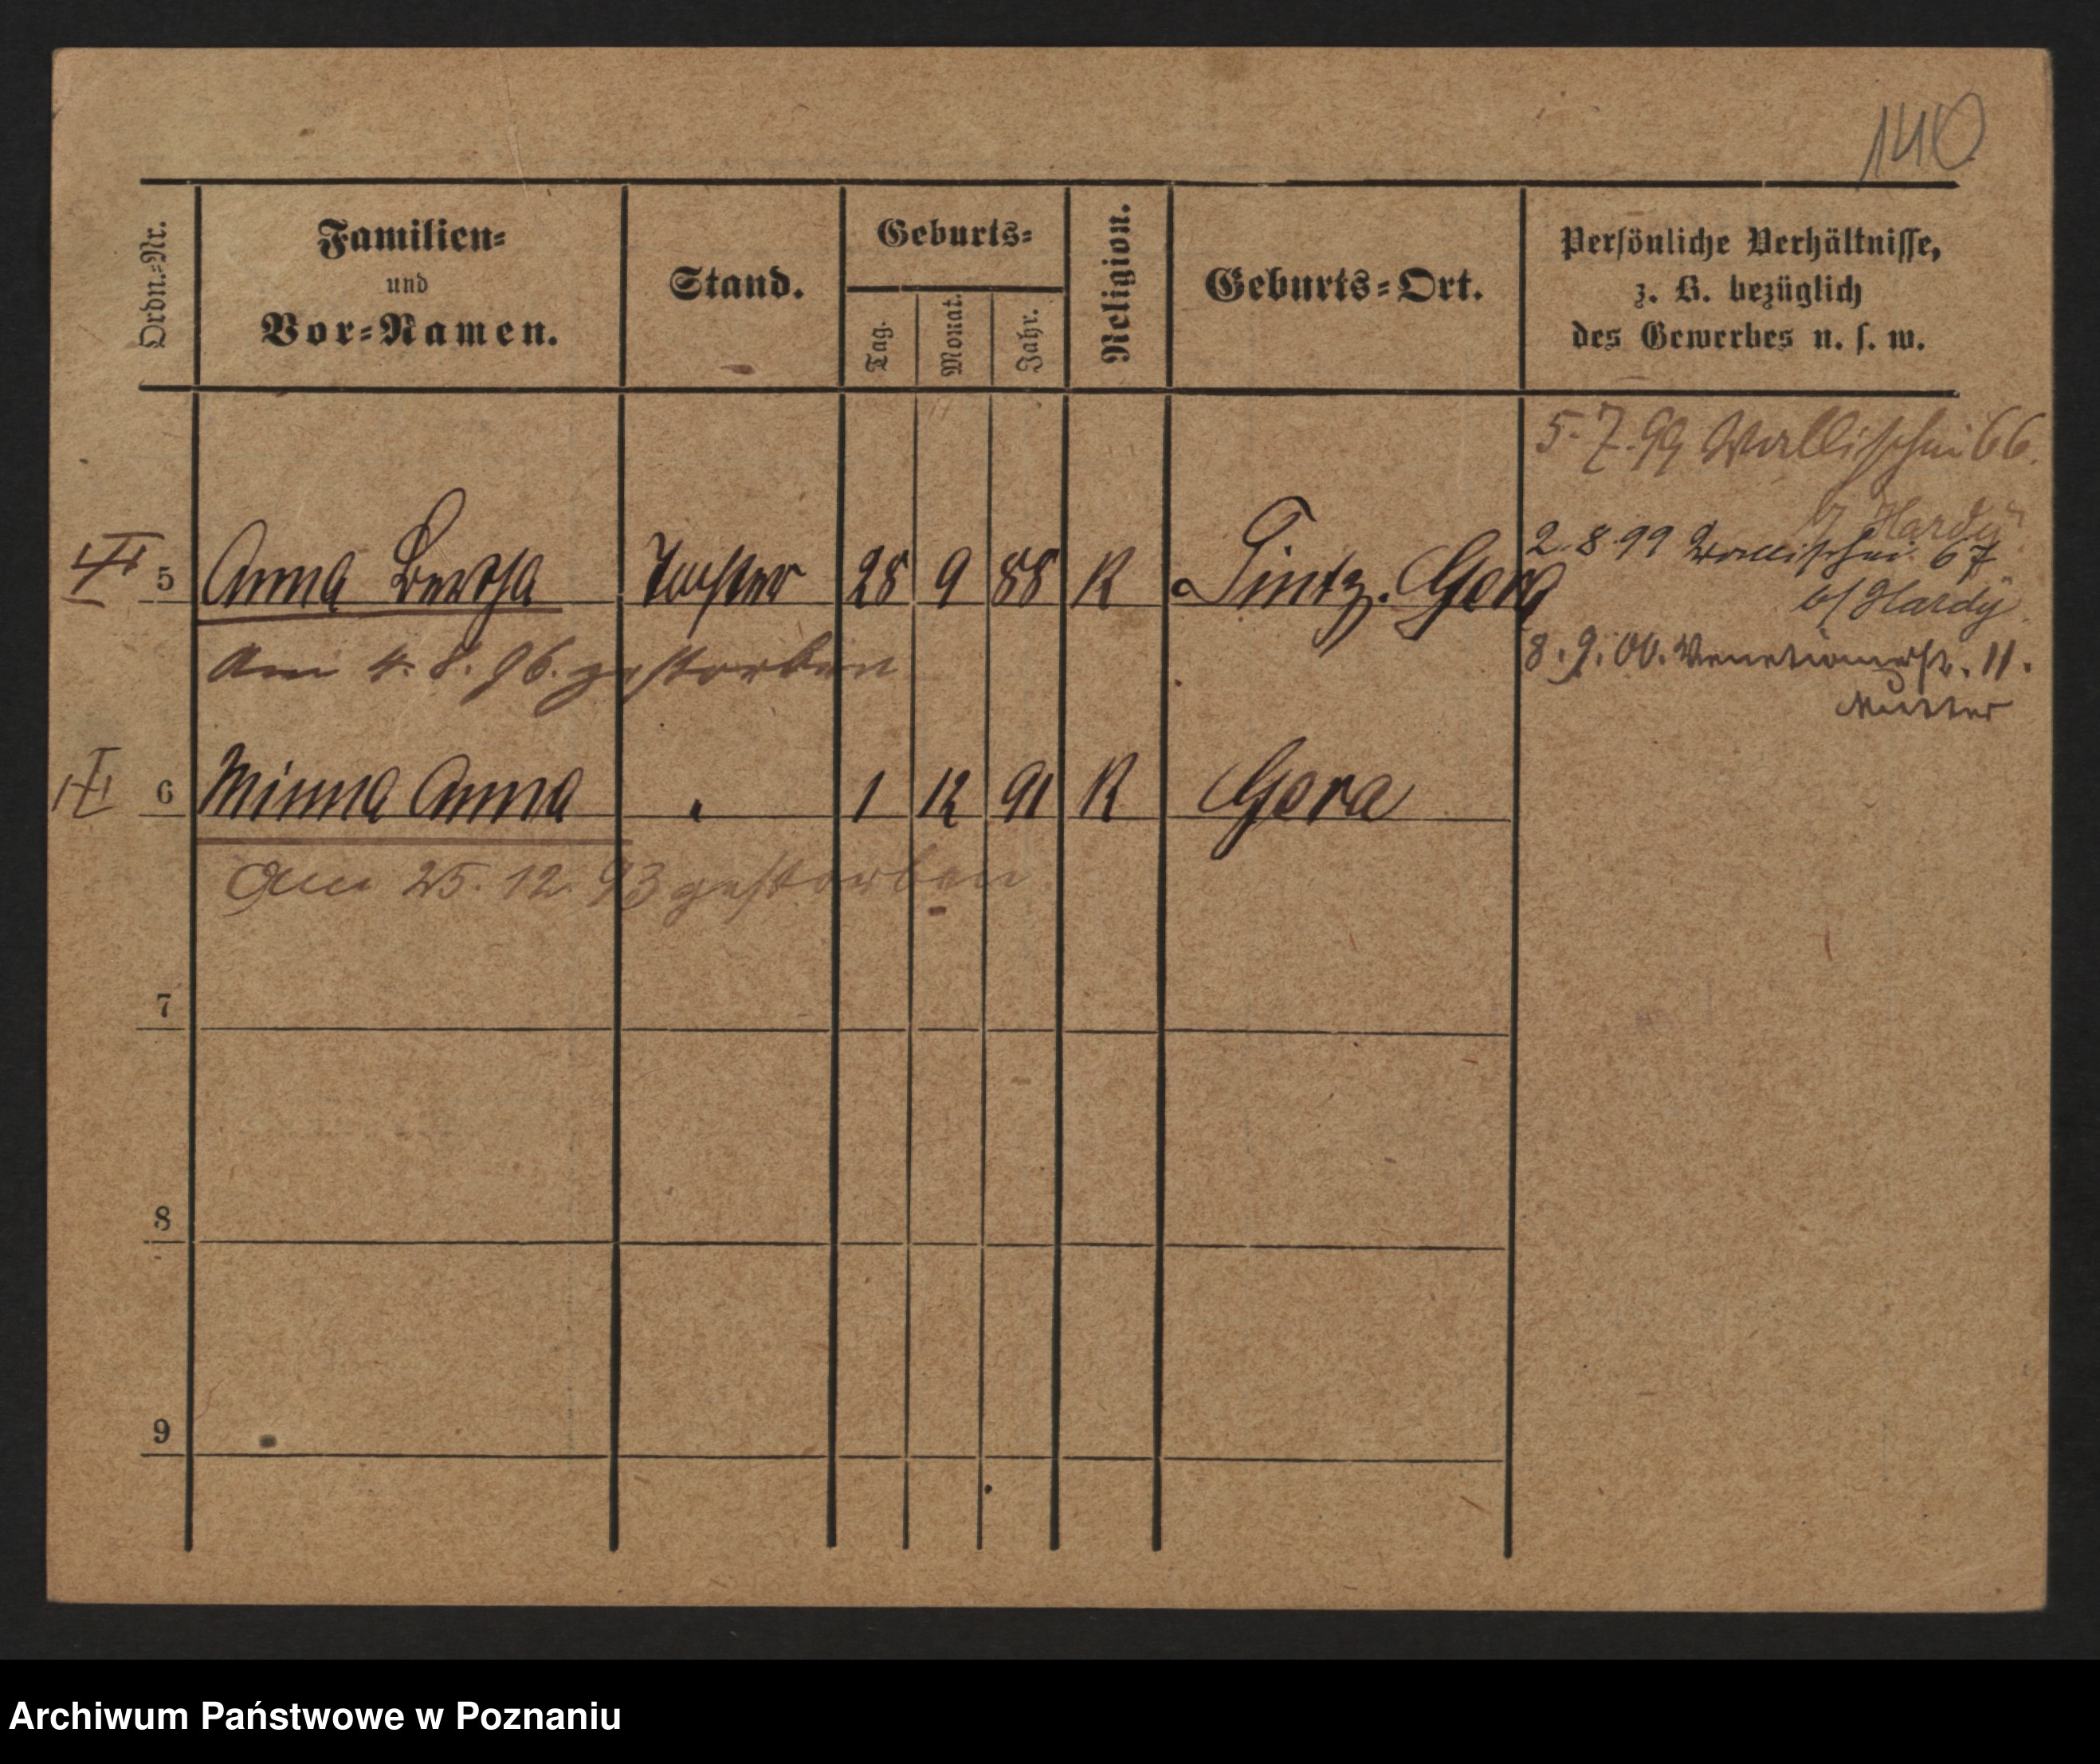 140
Ordn.=Nr.
Familien=
und
Vor=Namen.
Stand.
Geburts=
Tag.
Monat.
Jahr.
Religion.
Geburts=Ort.
Persönliche Verhältnisse,
z. B. bezüglich
des Gewerbes u. s. w.
5.7.99 Wallischei 66.
b/ Hardy
2.8.99 Wallischei 67
b/ Hardy
5 Anna Bertha Tochter 28 9 88 K Gora
Am 4.8.96. gestorben
8.9.00. Venetianerstr. 11.
Mutter
6 Minna Anna " 1 12 91 K Gora
Am 25.12.93 gestorben
7
8
9
Archiwum Państwowe w Poznaniu